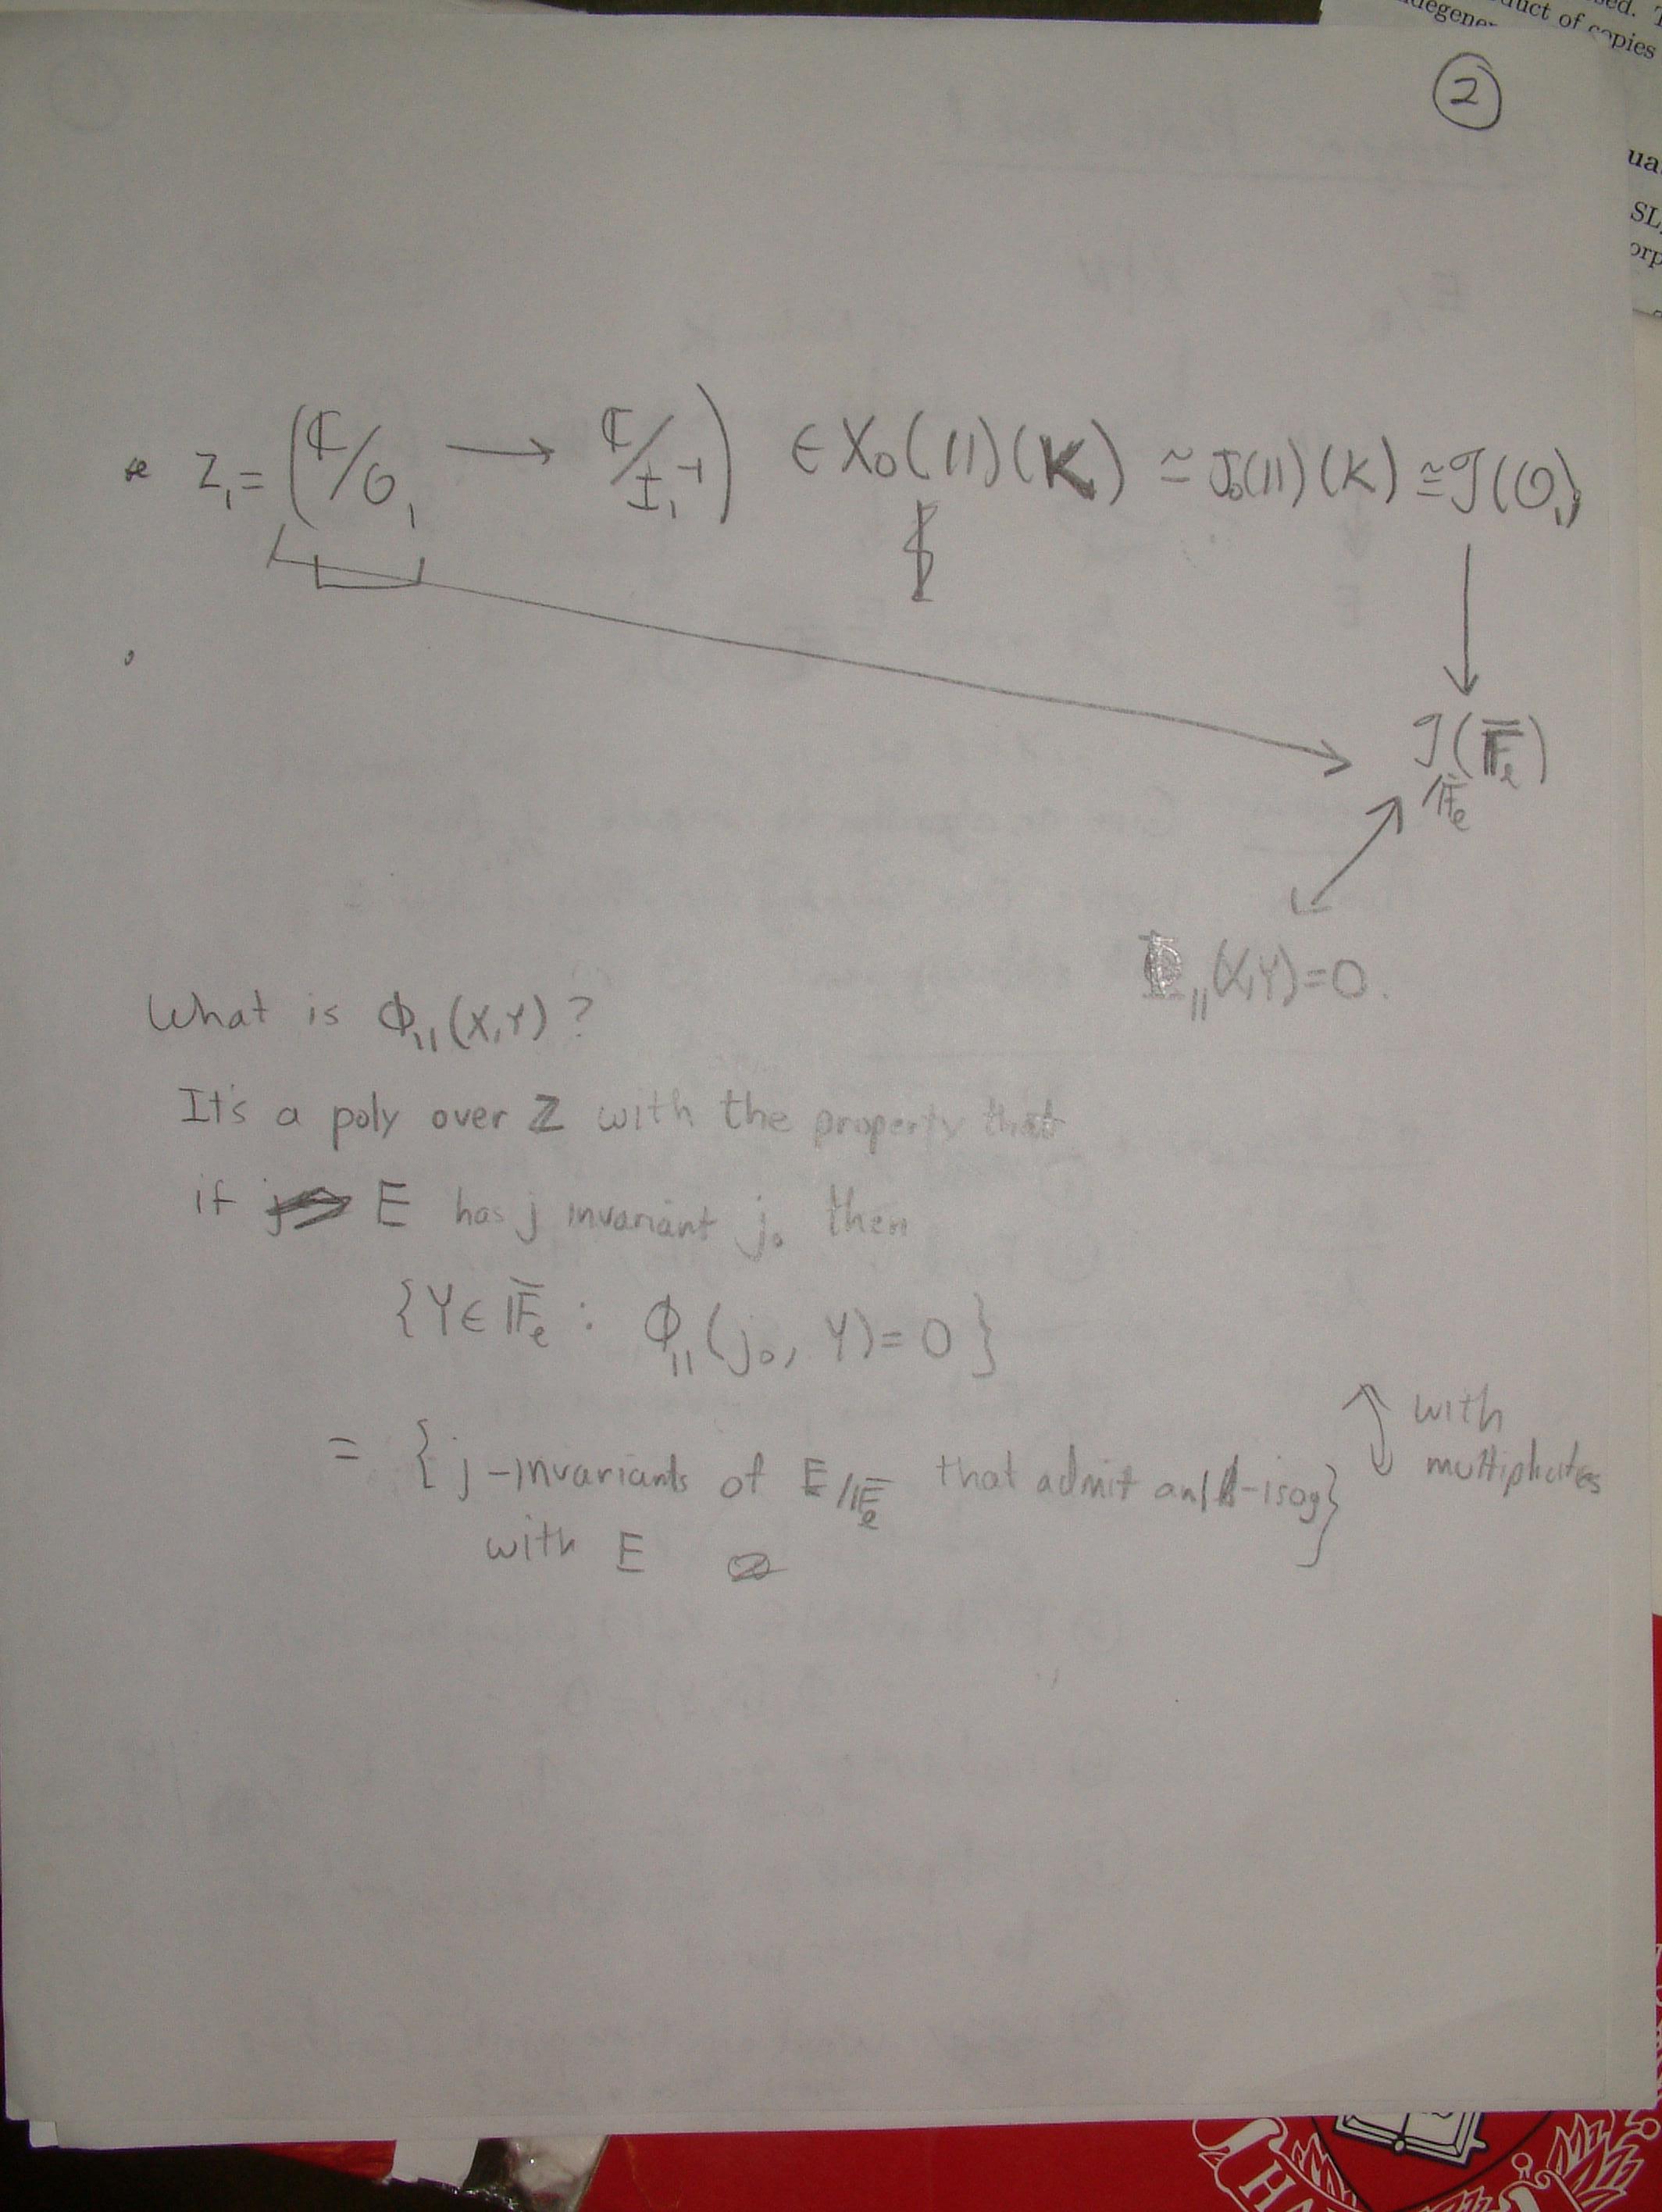 sed. T
degene-
duct of copies
②
ua
SL
orp
Z₁ = (ℂ/O₁ → ℂ/I₁⁻¹) ∈ X₀(11)(K) ≅ J₀(11)(K) ≅ J(O₁)
J/𝔽ℓ(𝔽̄ℓ)
Φ₁₁(X,Y)=0.
What is Φ₁₁(X,Y)?
It's a poly over ℤ with the property that
if E has j invariant j₀ then
{Y∈𝔽̄ℓ : Φ₁₁(j₀, Y)=0}
= {j-invariants of E/𝔽̄ℓ that admit an 11-isog}
with E
with
multiplicities
HA